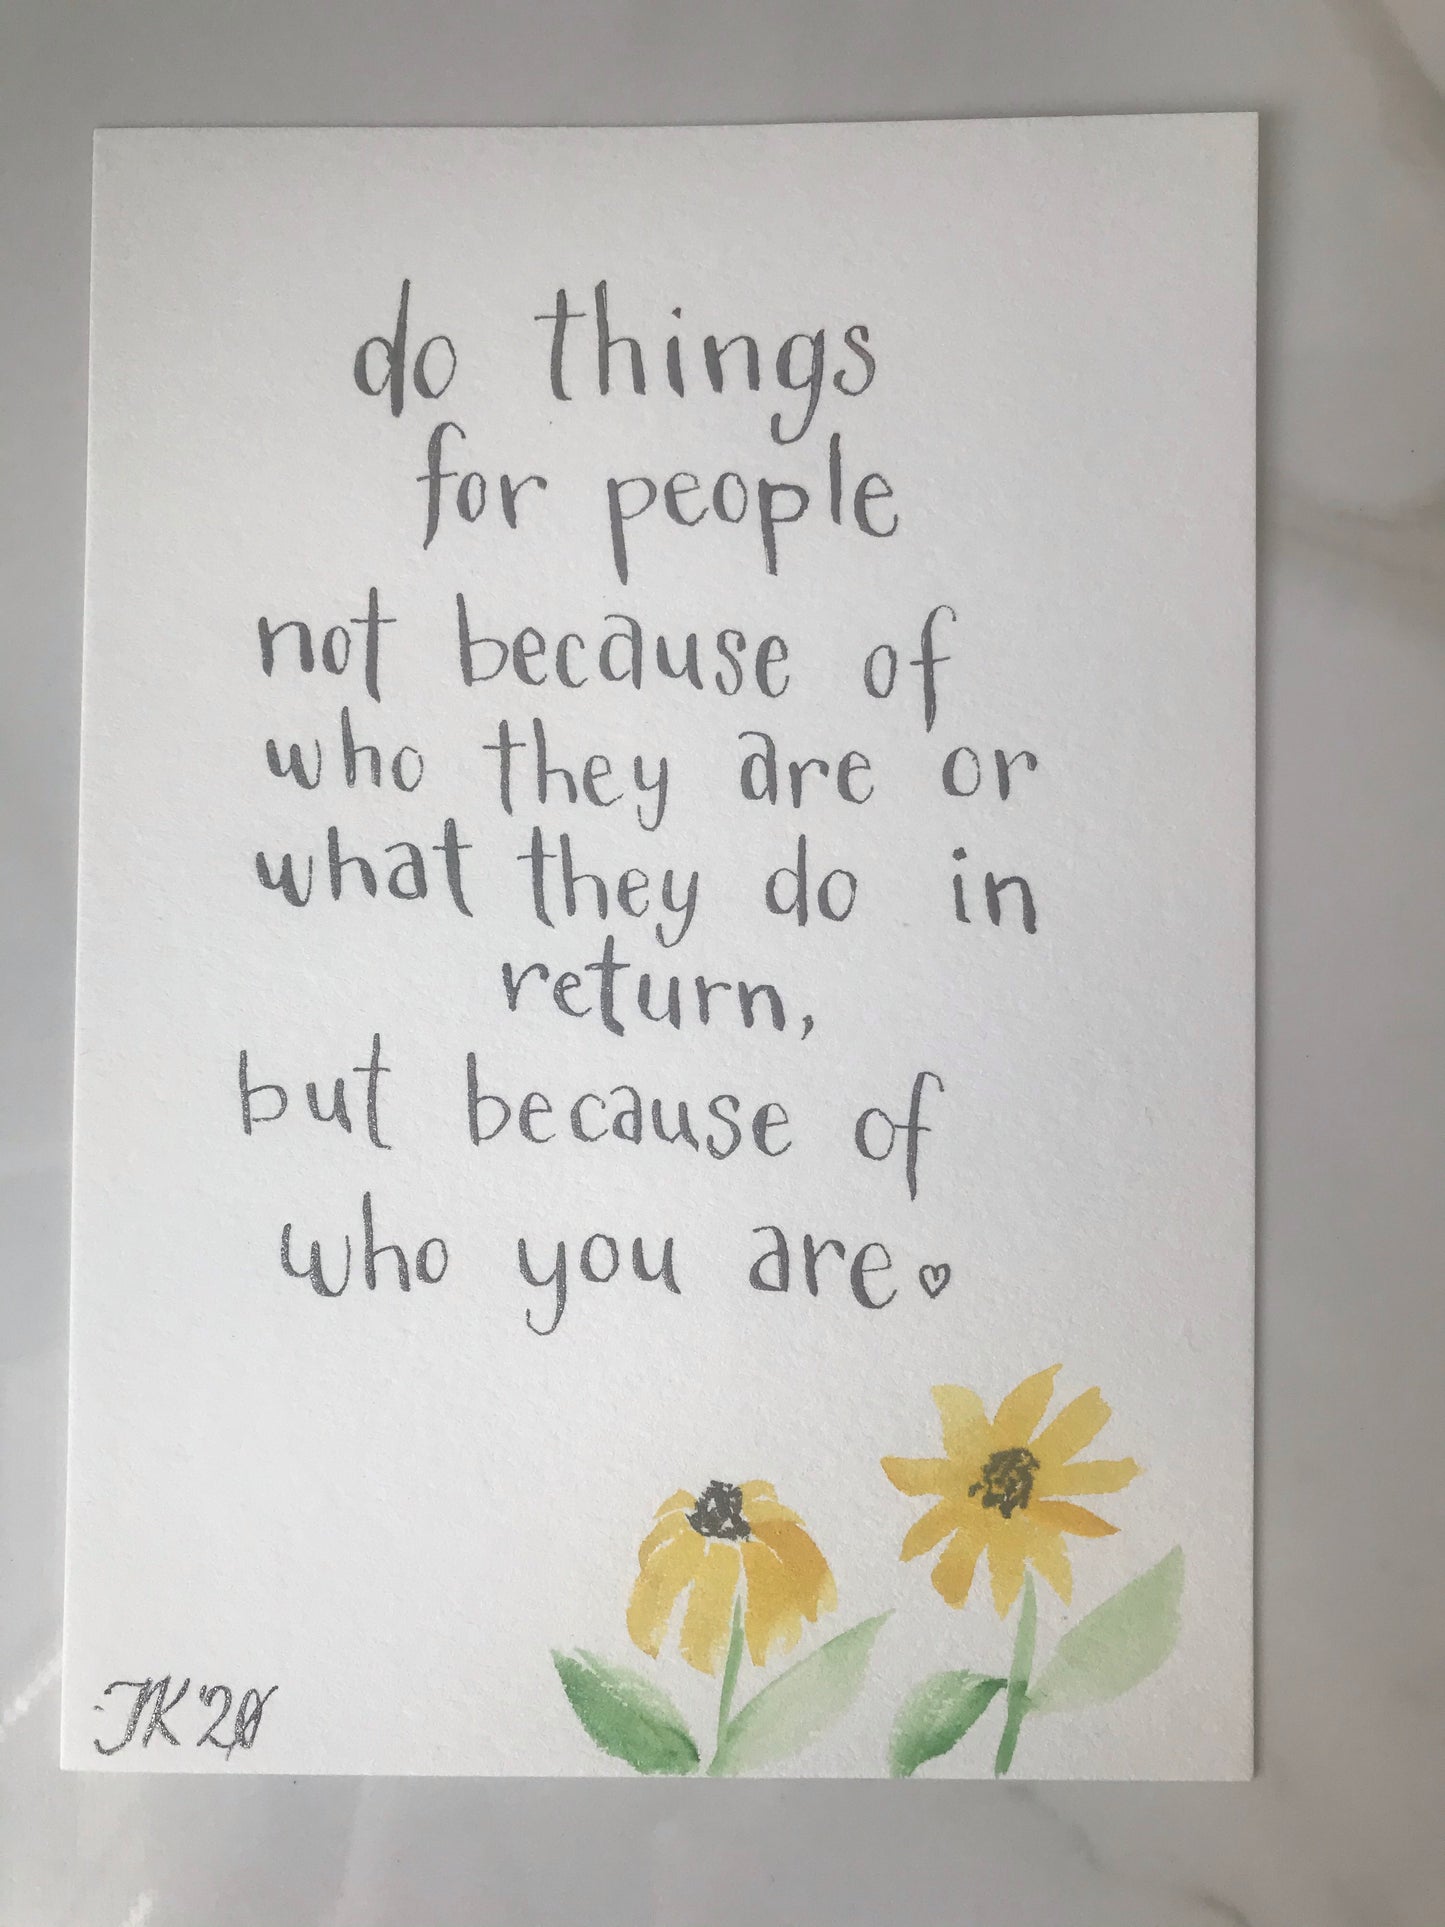 do things
for people
not because of
who they are or
what they do in
return,
but because of
who you are.
JK '20